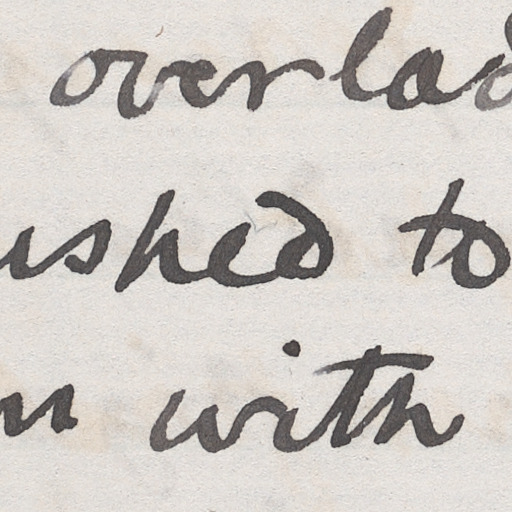 overlad
ushed to
n with